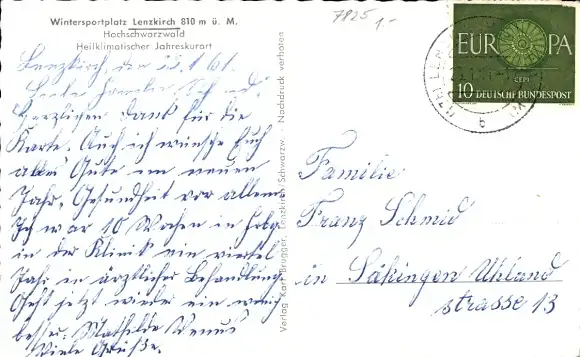 Wintersportplatz Lenzkirch 810 m ü. M.
Hochschwarzwald
Heilklimatischer Jahreskurort
7825 1.-
Lenzkirch, den 1.61.
Liebe Familie Schmid,
Herzligen Dank für die
Karte. Auch ich wünsche Euch
alles Gute im neuen
Jahr, Gesundheit vor allem.
Ich war 10 Wochen in
in der Klinik ein viertel
Jahr in ärztlicher Behandlung
Geht jetzt wieder ein wenig
besser. Mathilde Venus
Viele Grüße.
Verlag Karl Brugger, Lenzkirch Schwarzw. · Nachdruck verboten
EUROPA
CEPT
10 DEUTSCHE BUNDESPOST
b
Familie
Franz Schmid
in Säkingen Uhland
strasse 13